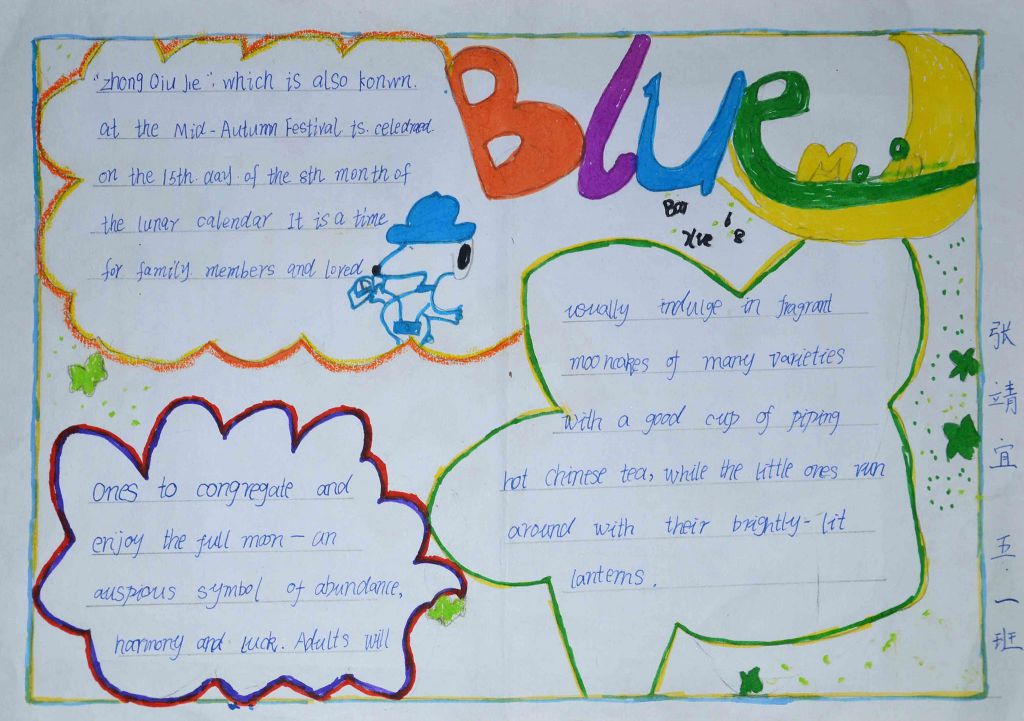 Blue
Moon
"Zhong Qiu Jie". which is also konwn.
at the Mid-Autumn Festival is celedraed
on the 15th day of the 8th month of
the lunar calendar It is a time
for family members and loved
Ones to congregate and
enjoy the full moon - an
auspious symbol of abundance,
harmony and luck. Adults will
usually indulge in fragrant
mooncakes of many varieties
with a good cup of piping
hot Chinese tea, while the little ones run
around with their brightly-lit
lanterns.
张靖宜五.一班